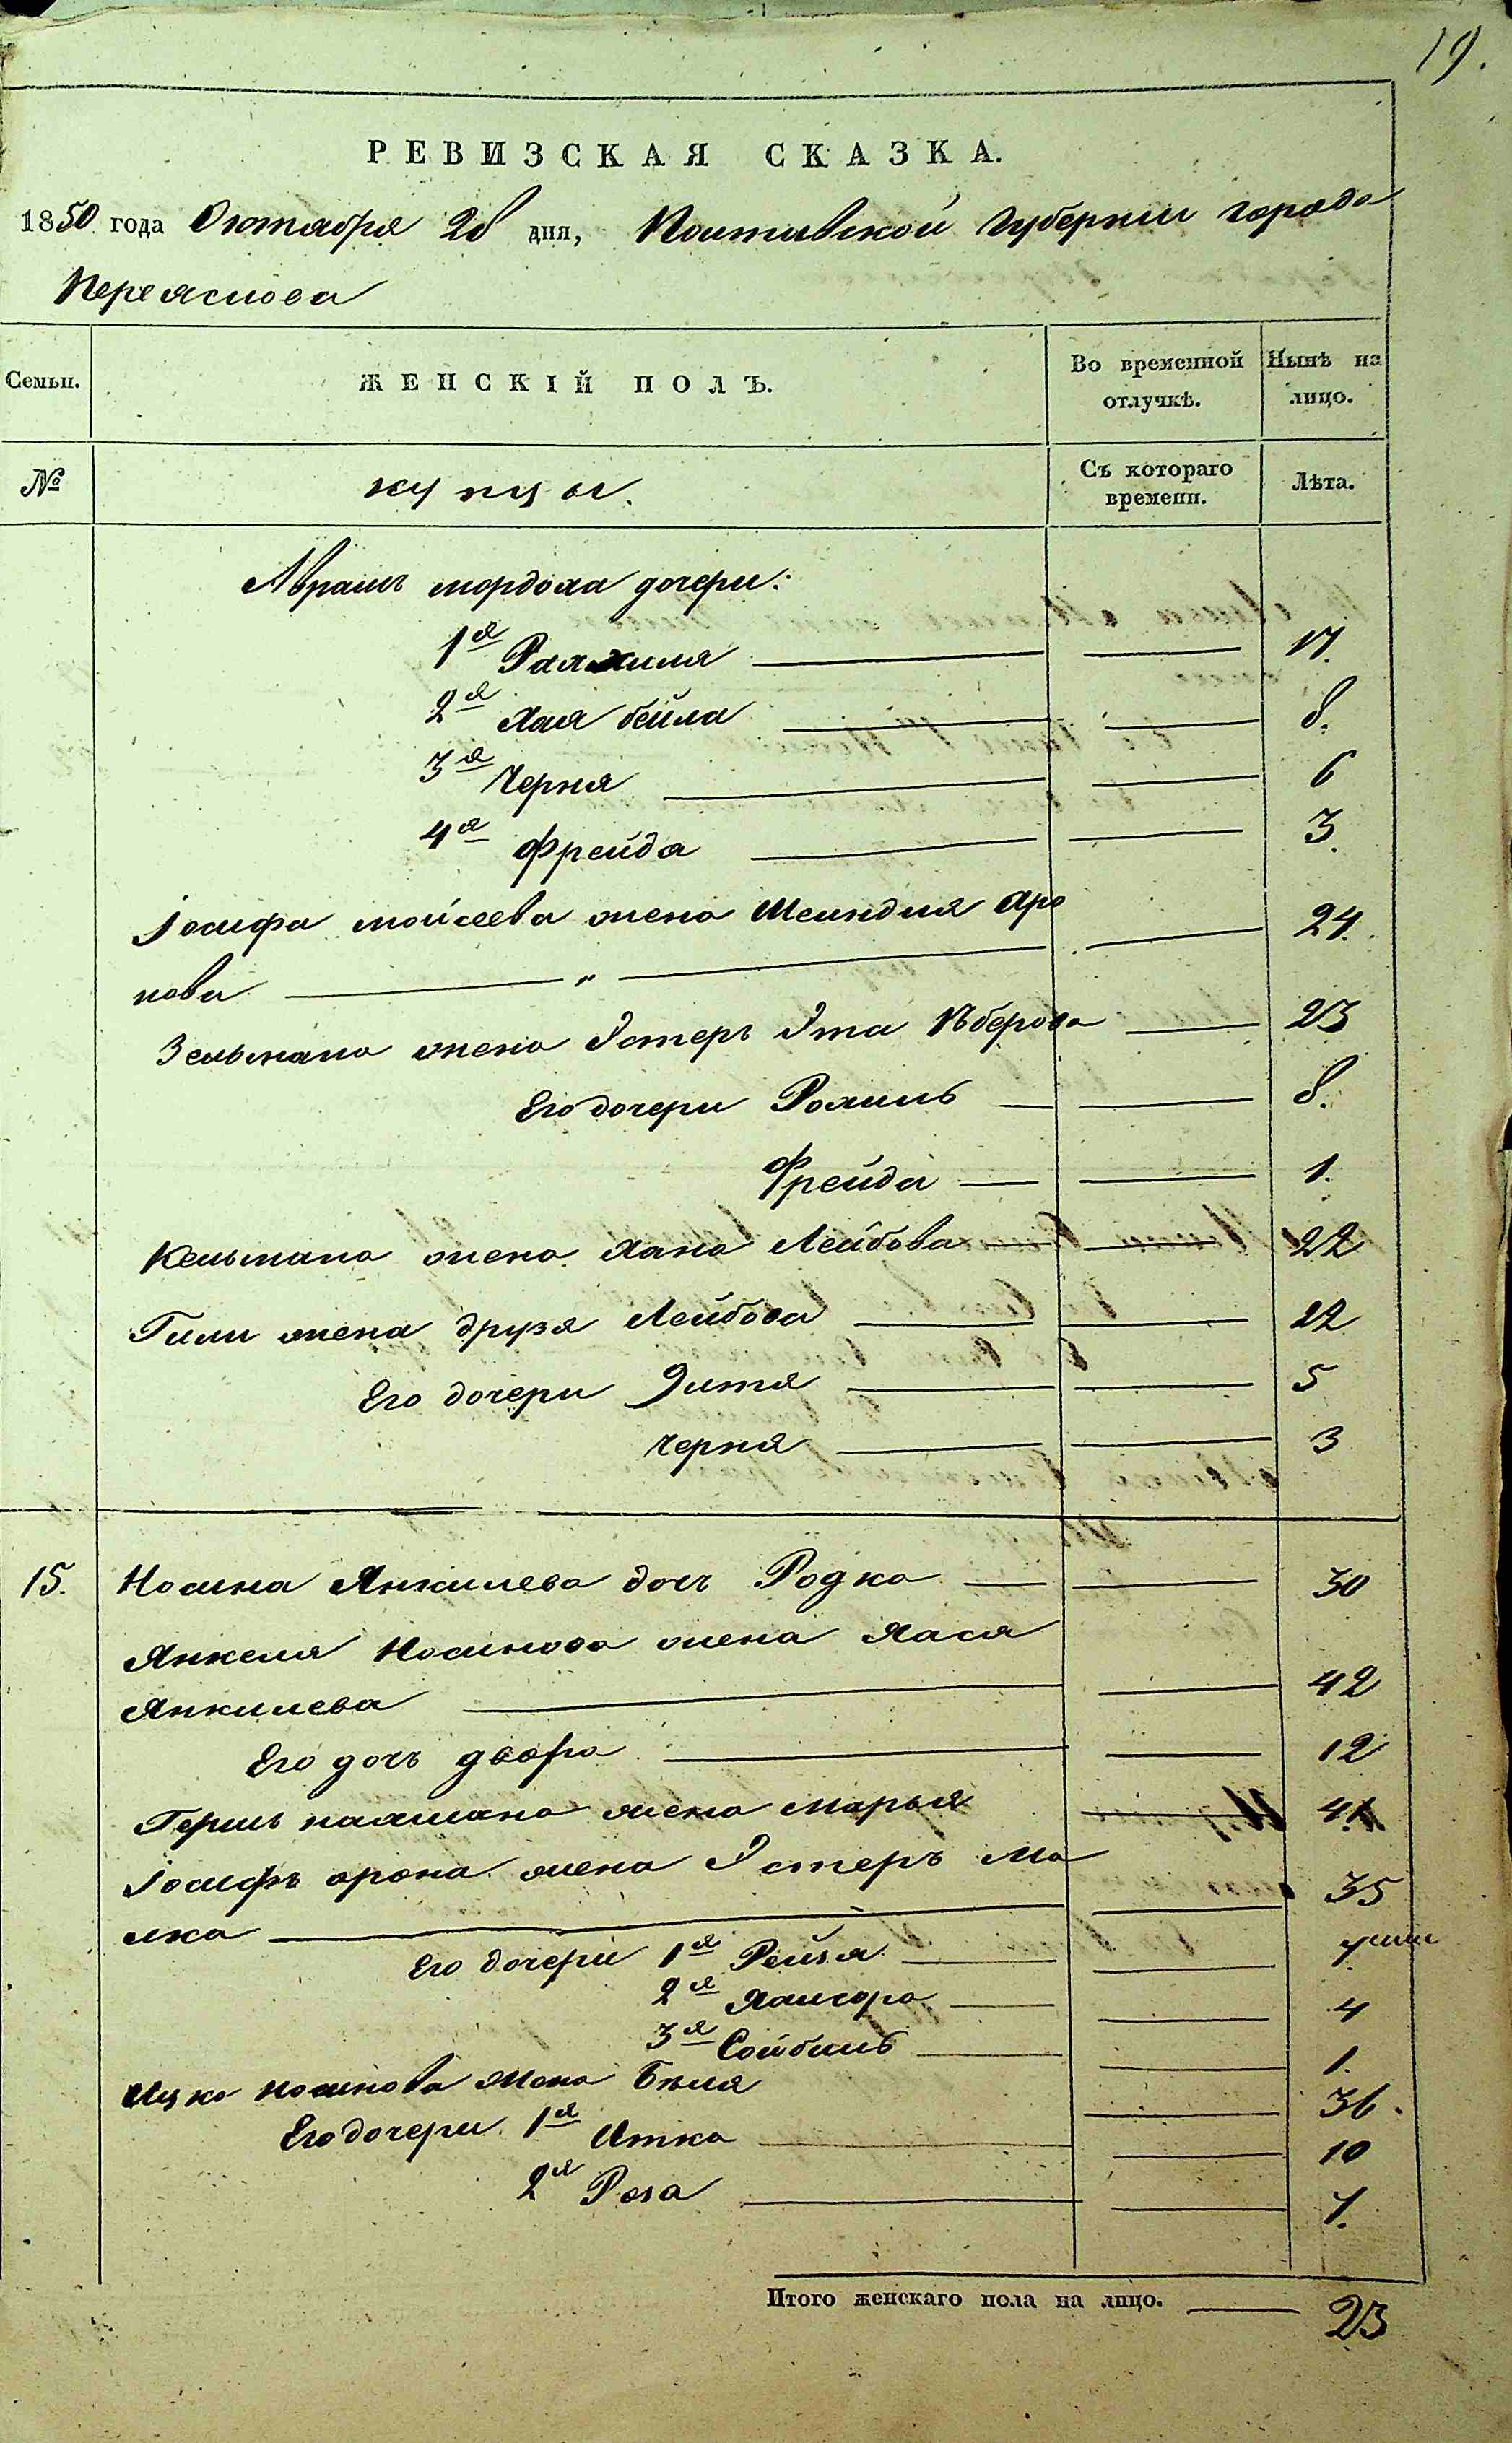 19.
РЕВИЗСКАЯ СКАЗКА.
1850 года Октября 28 дня, Полтавской Губернии города
Переяслова
Семьи. ЖЕНСКІЙ ПОЛЪ. Во временной отлучкѣ. Нынѣ на лицо.
№ купцы. Съ котораго времени. Лѣта.
Аврамъ мордоха дочери:
1я Рахиля 17.
2я Хая бейла 8.
3я Черня 6
4я Фрейда 3.
Іосифа мойсеева жена Шейндля Аро
нова " 24.
Зельмана жена Эстеръ Эта 23
Его дочери Рохиль 8.
Фрейда 1.
Кельмана жена Хана Лейбова 22
Гили жена друзя Лейбова 22
Его дочери Эитя 5
черня 3
15.Носина Янкилева дочь Родка 30
Янкеля Носинова жена Хася
Янкилева 42
Его дочь двора 12
Гершъ нахмана жена марья 41
Іосифъ арона жена Эстеръ Ма
лка 35
Его дочери 1я Рейзя 7
2я 4
3я Сойбиль 1.
Ицко носинова жена Бѣля 36.
Его дочери 1я Итка 10
2я Роза 7.
Итого женскаго пола на лицо. 23